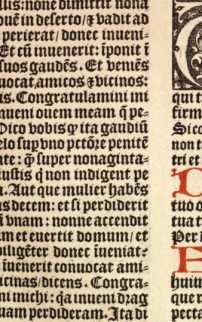 llis: none dimittit nona
ꝫ in deserto/ ⁊ vadit ad
perierat/ donec inueni-
Et cū inuenerit: īponit ī
suos gaudēs. Et veniēs
uocat amicos ⁊ vicinos:
is. Congratulamini mi
nueni ouem meam q̄ pe-
Dico vobis ꝙ ita gaudiū
elo sup vno pctōꝛe penitē
te: ꝙ̄ super nonaginta-
iustis q̄ non indigent pe
a. Aut que mulier habēs
as decem: et si perdiderit
ā vnam: nonne accendit
m et euertit domum/ et
iligēter donec īueniat:
īuenerit conuocat ami-
icinas/ dicens. Congra-
ni michi: qꝛ inueni dꝛag
uam perdideram. Ita di
qui t
firm
Sico
non t
tri et
tuo o
tua t
Per i
hui
que r
pecta